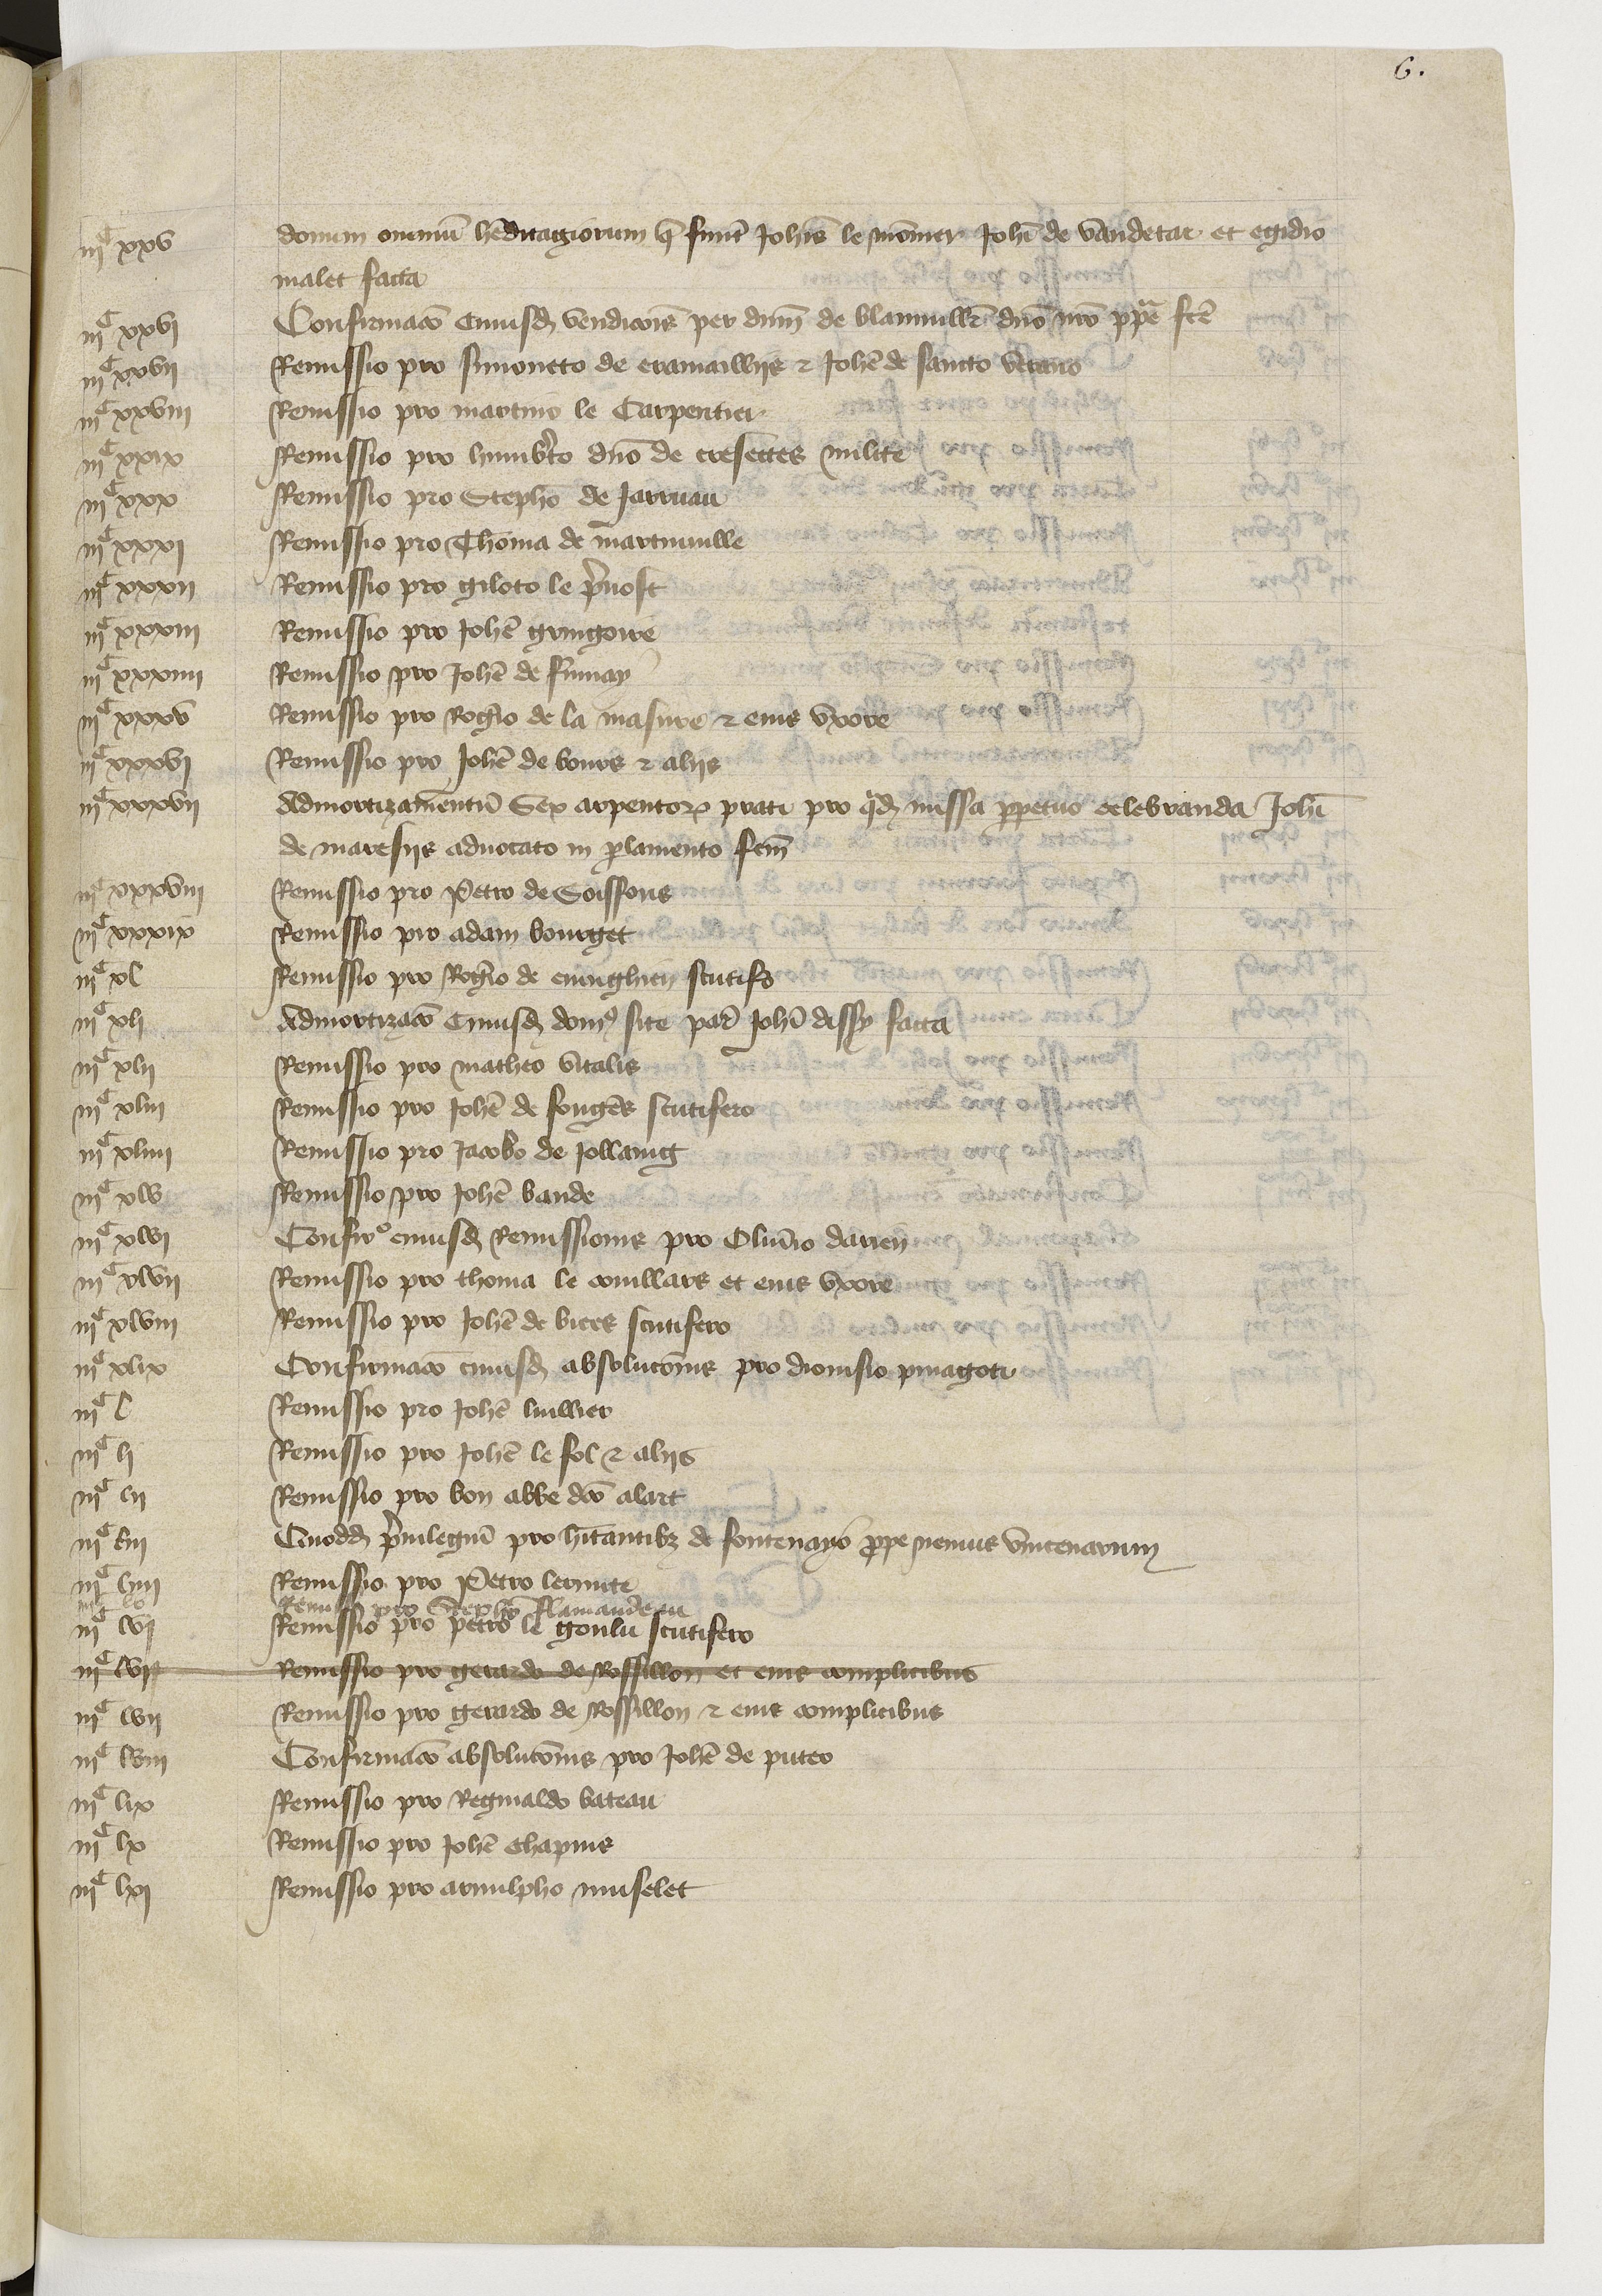 6.
iiiᶜ xxv donum omniū hēditagiorum q̄ fuer̄t Joh̄is le mōnier Joh̄i de vandetar et egidio
malet facta
iiiᶜ xxvi Confirmac̄o cuiusd̄ vendic̄ois per dn̄m de blainuillr̄ dn̄o nr̄o fc̄e
iiiᶜ xxvii Remissio pro simonetto de cramailliis ⁊ Joh̄e de sancto verano
iiiᶜ xxviii Remissio pro martino le Carpentier
iiiᶜ xxix Remissio pro humb̄to dn̄o de cresectes milite
iiiᶜ xxx Remissio pro Steph̄o de Jarruau
iiiᶜ xxxi Remissio pro Thoma de martinuille
iiiᶜ xxxii Remissio pro giloto le p̄uost
iiiᶜ xxxiii Remissio pro Joh̄e gringoire
iiiᶜ xxxiiii Remissio pro Joh̄e de fumay
iiiᶜ xxxv Remissio pro Roḡio de la masure ⁊ eius vxore
iiiᶜ xxxvi Remissio pro Joh̄e de bours ⁊ aliis
iiiᶜ xxxvii Admortizamentū Sex arpentoꝝ prati pro q̄d̄ missa ꝑpetuo celebranda Joh̄i
de maresiis aduocato in ꝑlamento fc̄m
iiiᶜ xxxviii Remissio pro Petro de Soissons
iiiᶜ xxxix Remissio pro adam bourget
iiiᶜ xl Remissio pro Roḡio de eninghien scutif̄o
iiiᶜ xli Admortizac̄o Cuiusd̄ domꝰ site par̄ Joh̄i dissy facta
iiiᶜ xlii Remissio pro matheo vitalis
iiiᶜ xliii Remissio pro Joh̄e de fouger̄s scutifero
iiiᶜ xliiii Remissio pro Jacobo de Jollaing
iiiᶜ xlv Remissio pro Joh̄e bande
iiiᶜ xlvi Confirᵒ cuiusd̄ Remissionis pro Oliu̅io darien
iiiᶜ xlvii Remissio pro thoma le couillars et eius vxore
iiiᶜ xlviii Remissio pro Joh̄e de bices scutifero
iiiᶜ xlix Confirmac̄o cuiusd̄ absoluc̄onis pro dionisio pinagoti
iiiᶜ l Remissio pro Joh̄e luillier
iiiᶜ li Remissio pro Joh̄e le fol ⁊ aliis
iiiᶜ lii Remissio pro bon abbe dc̄o alart
iiiᶜ liii Quodd̄ p̄uilegiū pro h̄itantibꝫ de fontenayo ꝓpe nemus vincenarum
iiiᶜ liiii Remissio pro Petro lermite
iiiᶜ lv Remissio pro Steph̄o flamandeau
iiiᶜ lvi Remissio pro petro le goulu scutifero
iiiᶜ lvii Remissio pro gerardo de Rossillon et eius complicibus
iiiᶜ lvii Remissio pro gerardo de Rossillon ⁊ eius complicibus
iiiᶜ lviii Confirmac̄o absoluc̄onis pro Joh̄e de puteo
iiiᶜ lix Remissio pro Reginaldo bateau
iiiᶜ lx Remissio pro Joh̄e chapuis
iiiᶜ lxi Remissio pro arnulpho muselet